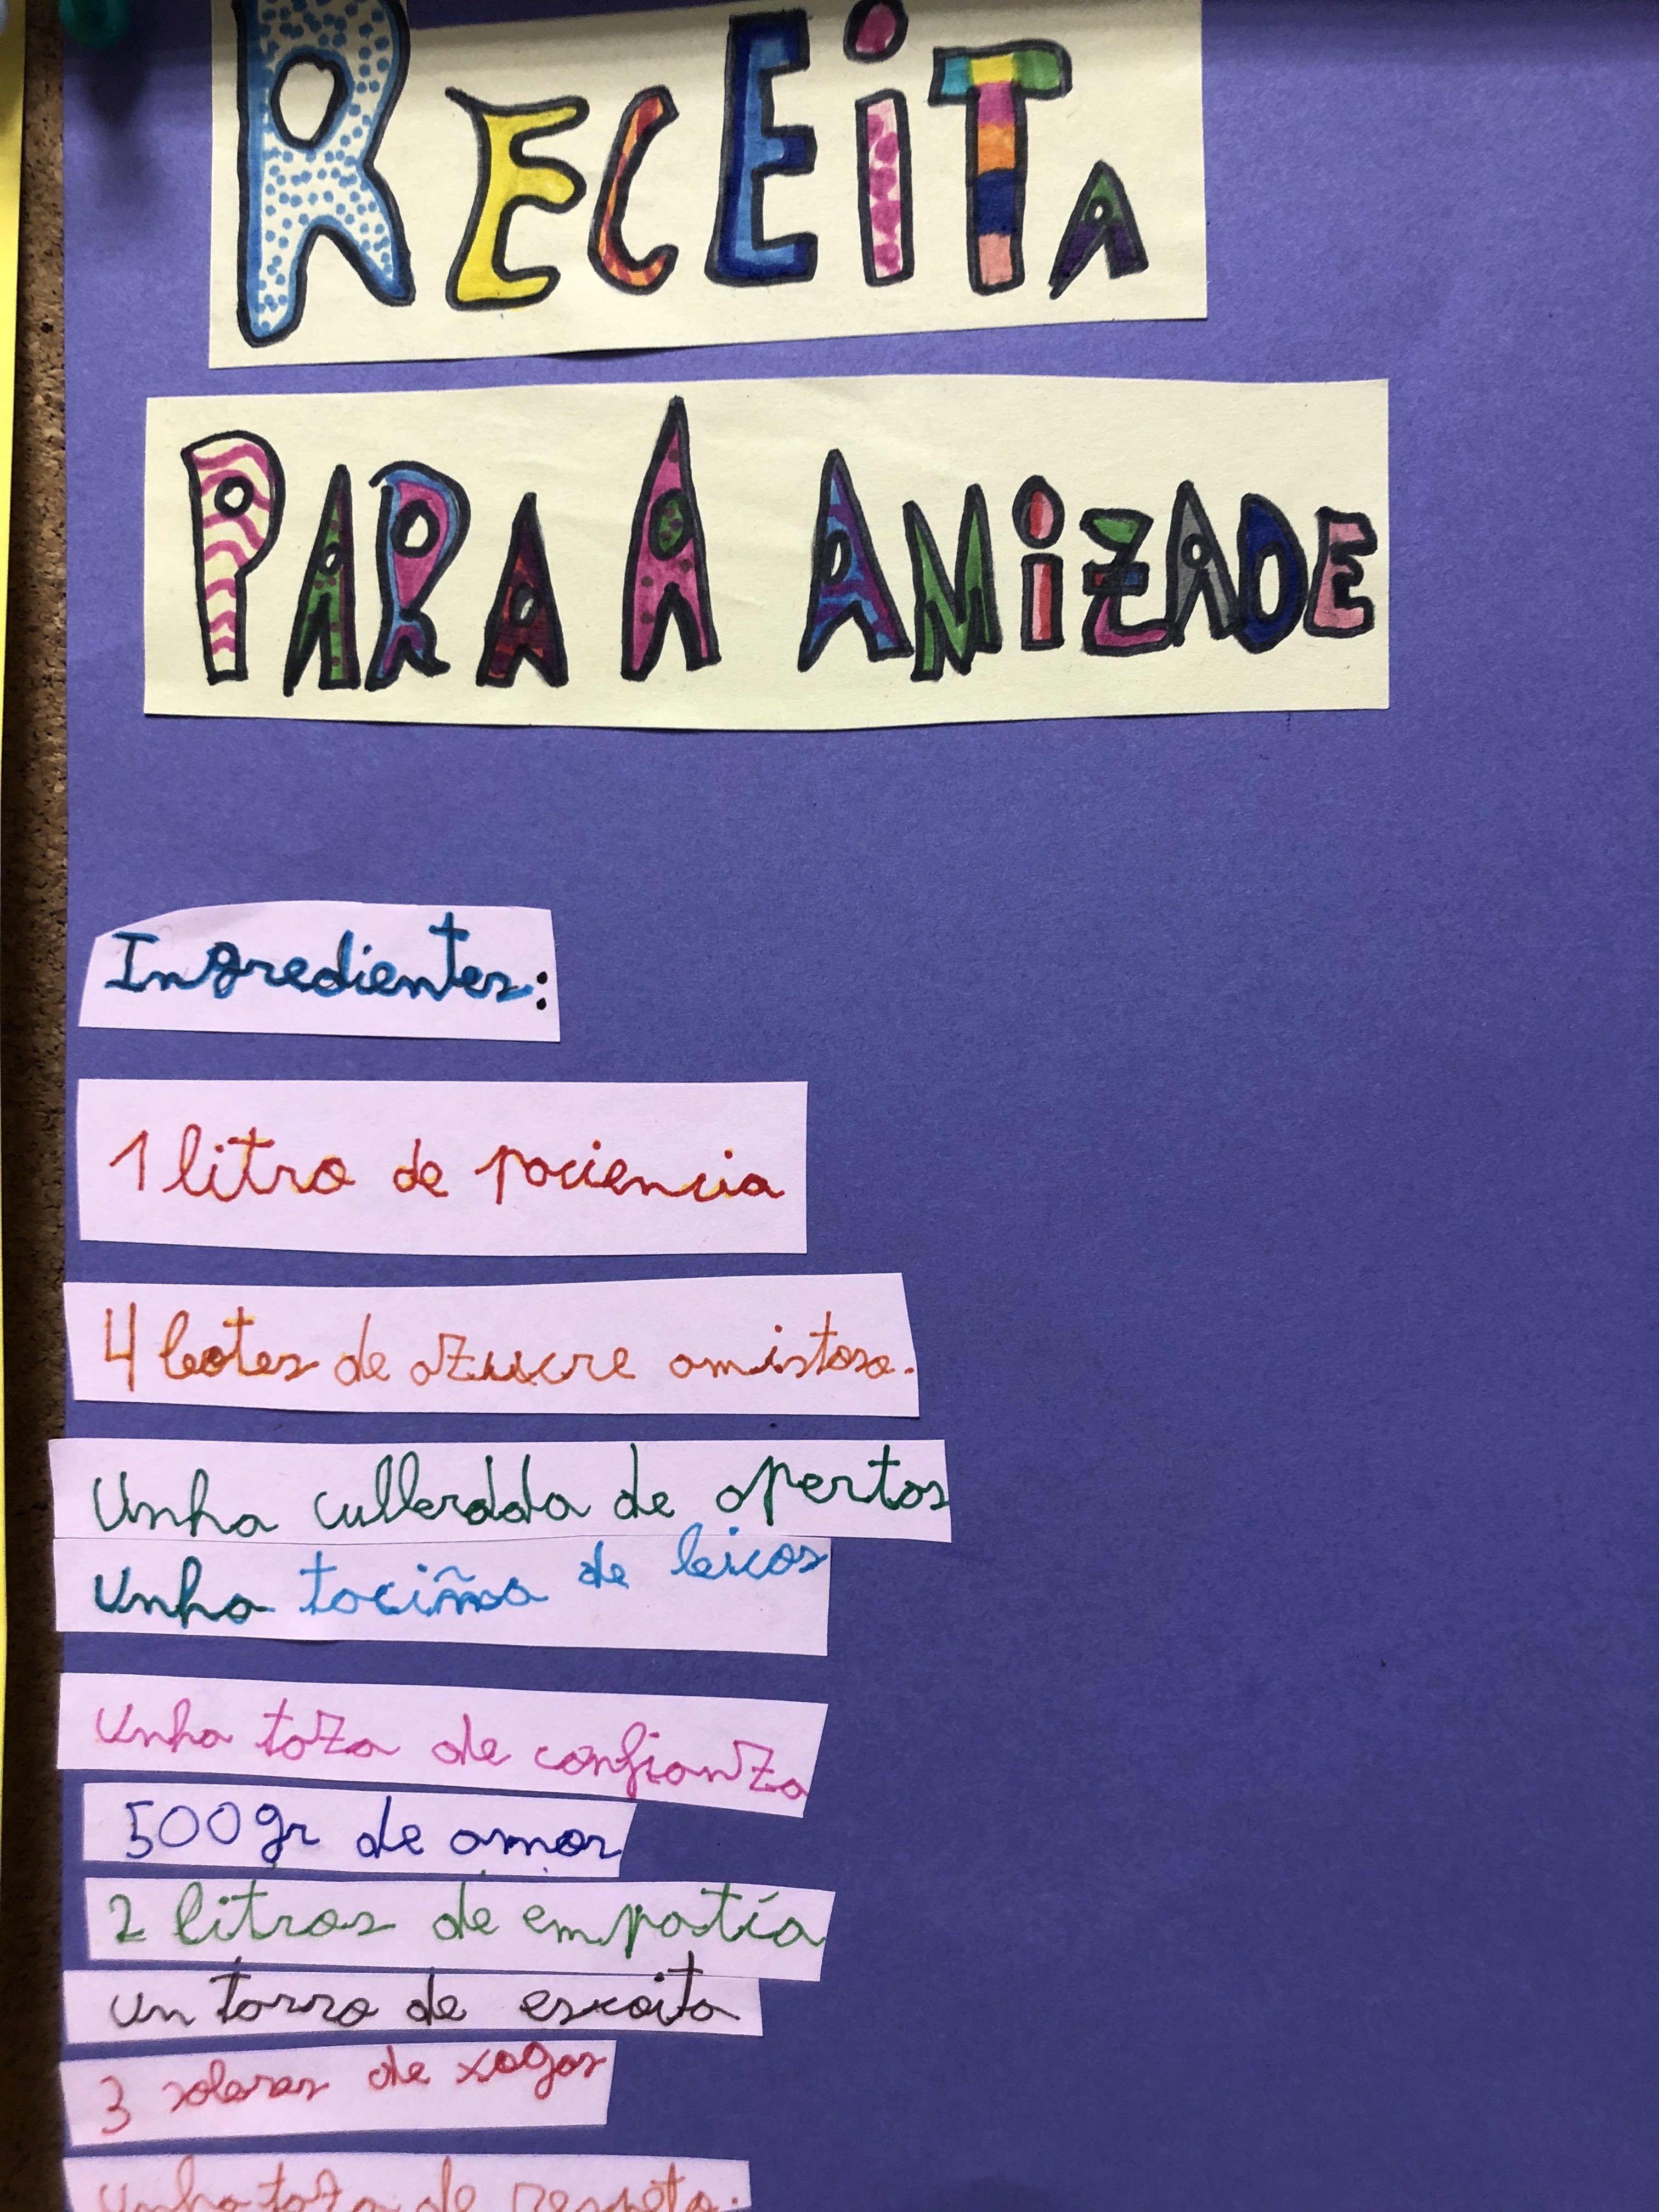 RECEITA
PARA A AMIZADE
Ingredientes:
1 litro de paciencia
4 botes de azucre amistoso.
Unha cullerada de apertos
Unha taciña de bicos
Unha taza de confianza
500gr de amor
2 litros de empatía
un tarro de escoita
3 sobres de xogos
Unha taza de respeto.